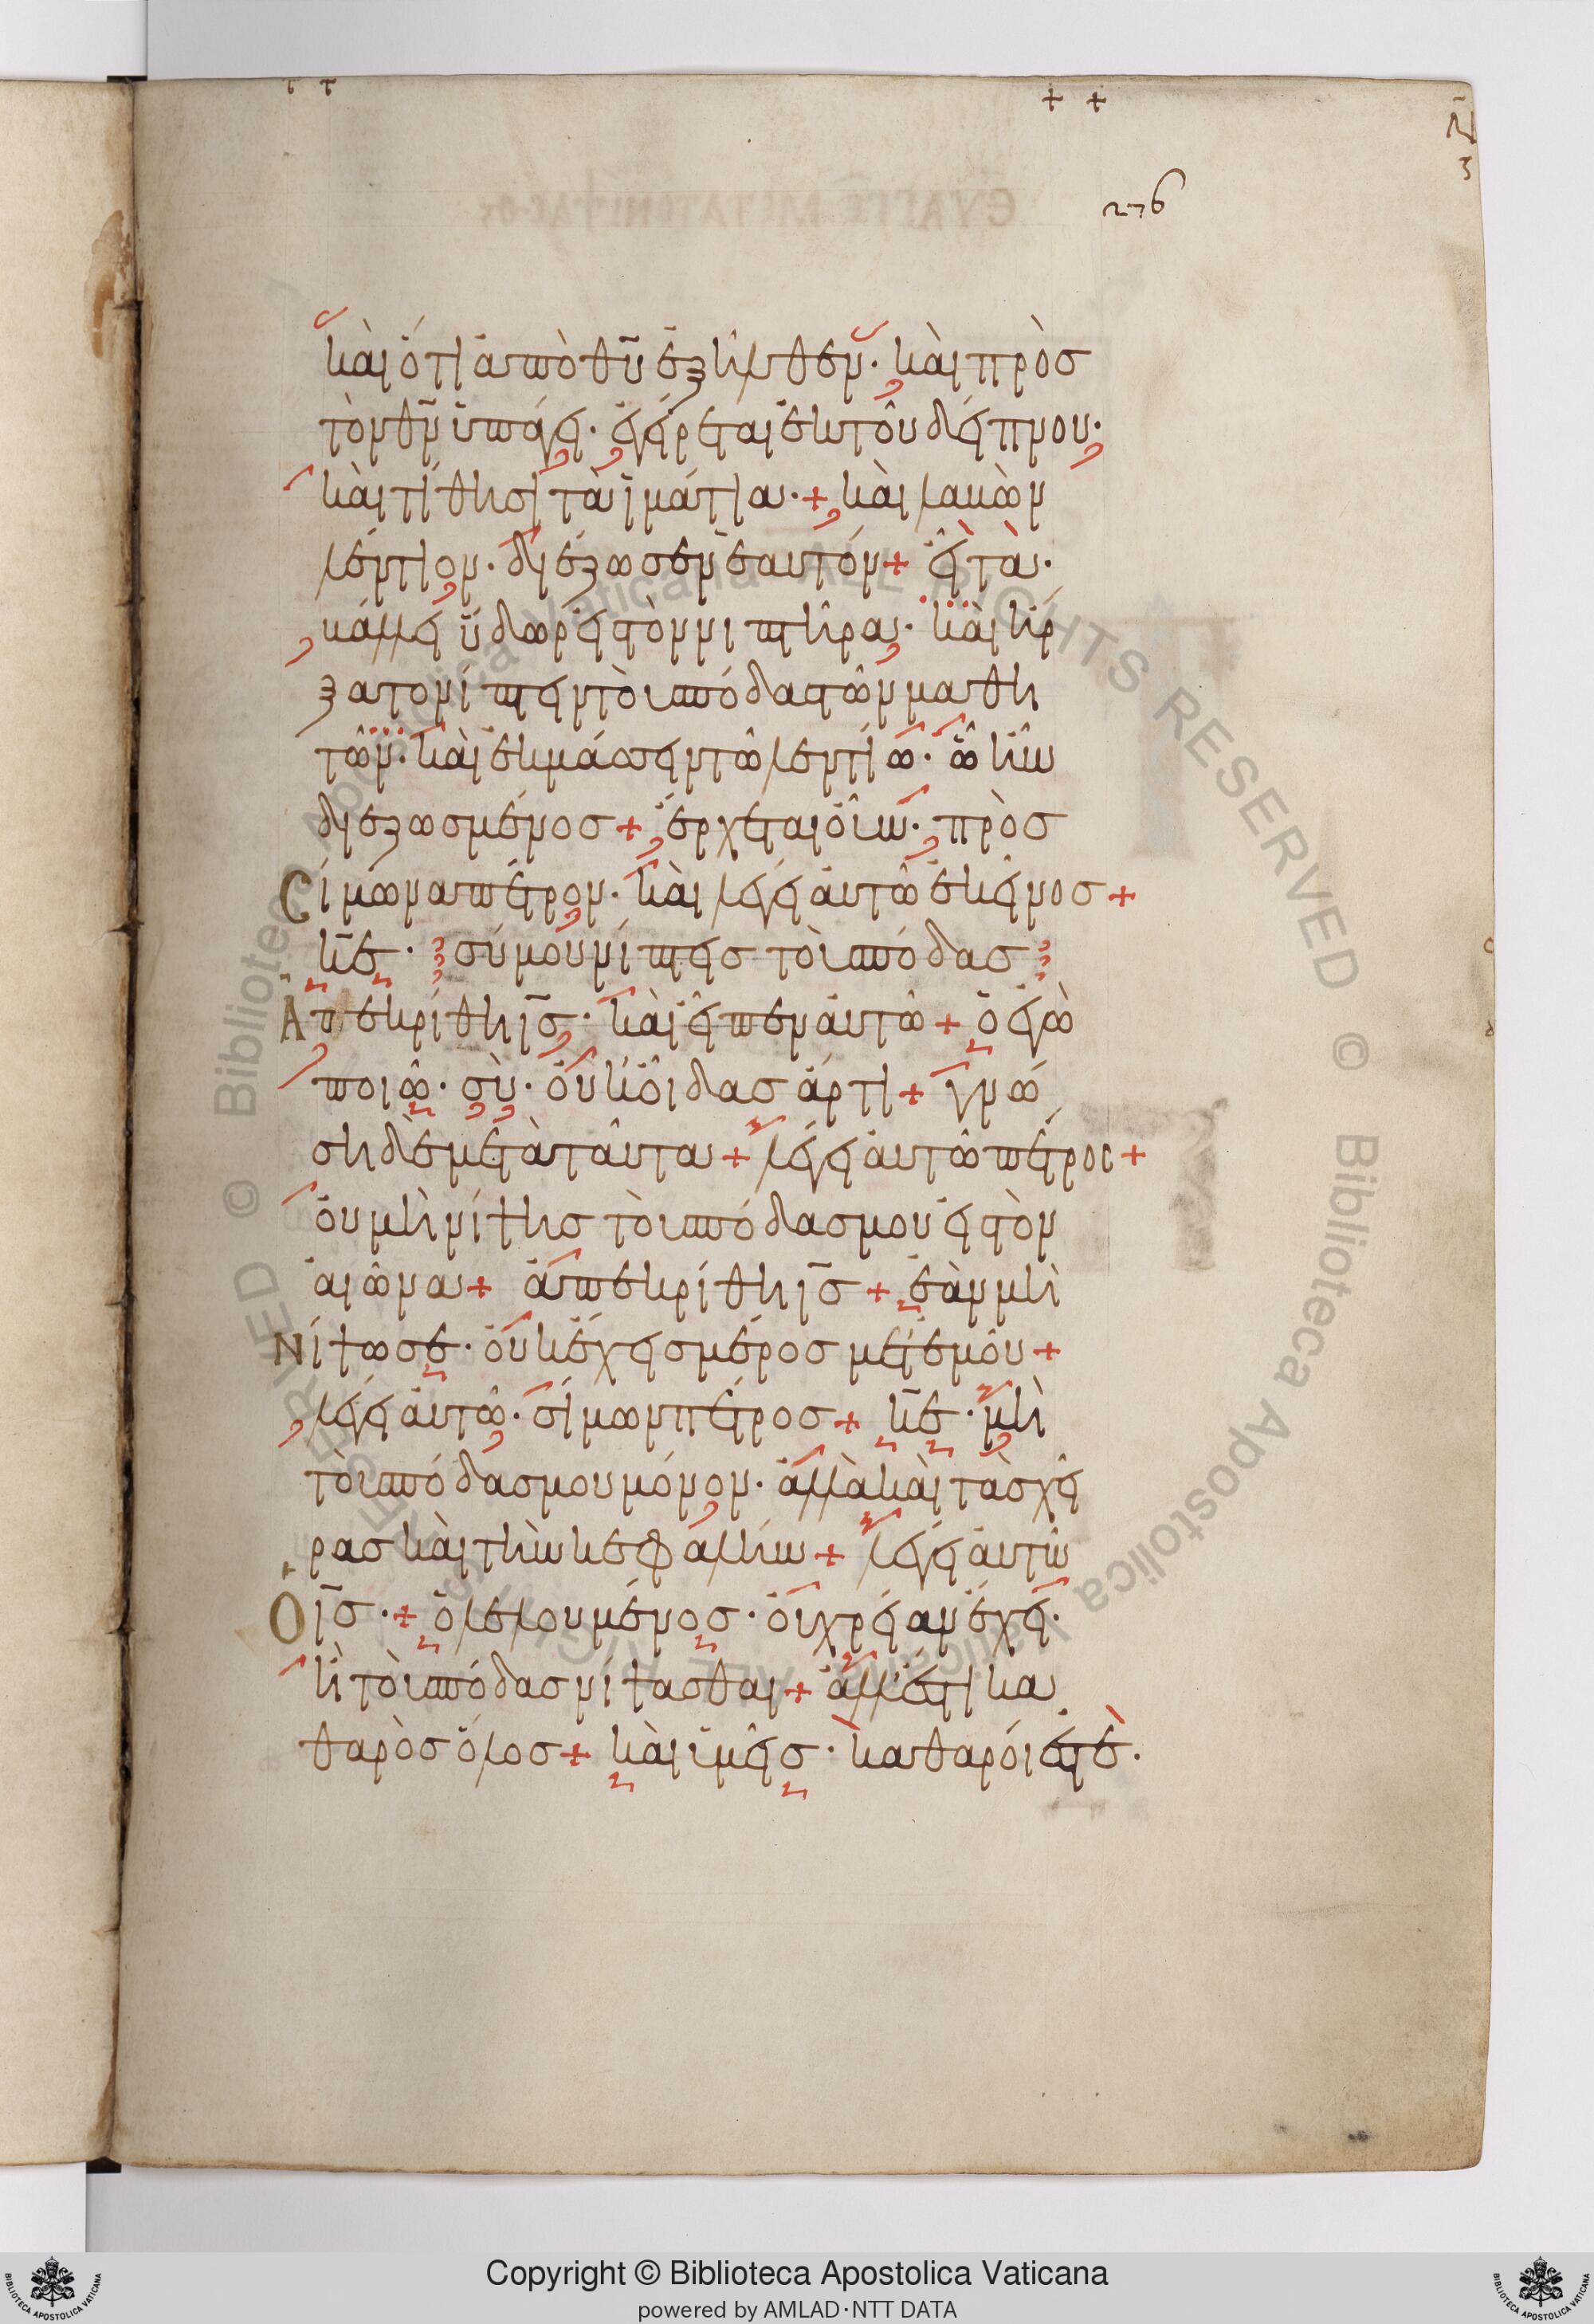 276
καὶ ὅτι ἀπὸ θ̅υ̅ ἐξῆλθεν· καὶ πρὸσ
τὸν θ̅ν̅ ὑπάγει· ἐγείρεται ἐκ τοῦ δείπνου·
καὶ τίθησι τὰ ἱμάτια·+ καὶ λαβὼν
λέντιον· διέζωσεν ἑαυτόν+ εἶτα·
βάλλει ὕδωρ εἰς τὸν νιπτῆρα· καὶ ἤρ
ξατο νίπτειν τοὺς πόδας τῶν μαθη
τῶν· καὶ ἐκμάσσειν τῶ λεντίω· ὧ ἦν
διεζωσμένοσ+ ἔρχεται οὖν· πρὸσ
Σίμωνα πέτρον· καὶ λέγει αὐτῶ ἐκεῖνοσ+
κ̅ε̅· σύ μου νίπτεισ τοὺς πόδασ
Ἀπεκρίθη ι̅σ̅· καὶ εἶπεν αὐτῶ + ὃ ἐγὼ
ποιῶ· σὺ· οὐκ οἶδασ ἄρτι+ γνώ
ση δὲ μετὰ ταῦτα+ λέγει αὐτῶ πέτρος+
οὐ μὴ νίψησ τοὺς πόδασ μου εἰς τὸν
αἰῶνα+ ἀπεκρίθη ι̅σ̅+ ἐὰν μὴ
Νίψω σε· οὐκ ἔχεισ μέροσ μετ' ἐμοῦ+
λέγει αὐτῶ· σίμων πέτροσ+ κ̅ε̅· μὴ
τοὺς πόδασ μου μόνον· ἀλλὰ καὶ τὰσ χεῖ
ρασ καὶ τὴν κεφαλήν+ λέγει αὐτῶ
Ὁ ι̅σ̅·+ ὁ λελουμένοσ· οὐ χρείαν ἔχει·
ἢ τοὺς πόδασ νίψασθαι+ ἀλλ' ἔστι κα
θαρὸσ ὅλοσ+ καὶ ὑμεῖσ· καθαροί ἐστέ·
© Biblioteca Apostolica Vaticana ALL RIGHTS RESERVED © Biblioteca Apostolica Vaticana ALL RIGHTS RESERVED
Copyright © Biblioteca Apostolica Vaticana
powered by AMLAD·NTT DATA
BIBLIOTECA APOSTOLICA VATICANA
BIBLIOTECA APOSTOLICA VATICANA